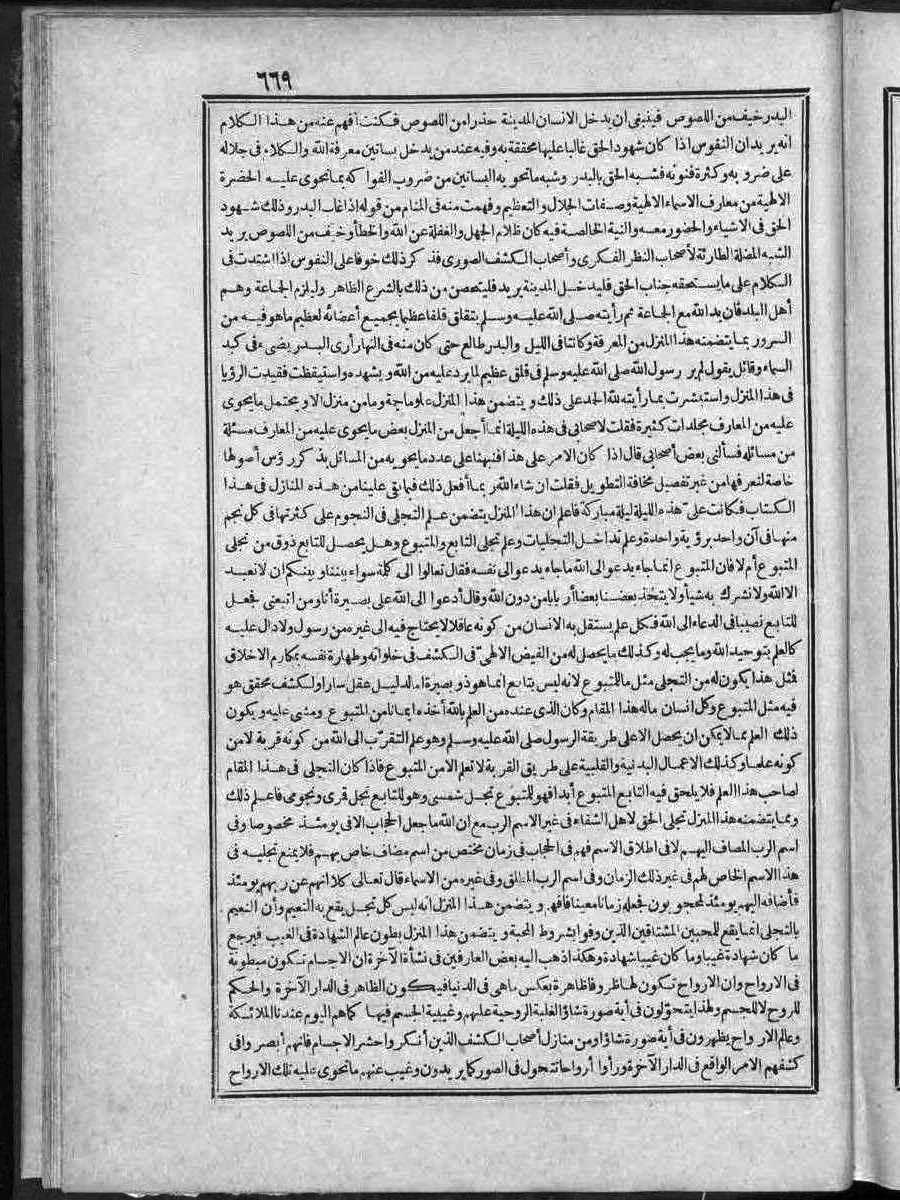 ٦٦٩
البدر خيف من اللصوص فينبغى ان يدخل الانسان المدينة حذرا من اللصوص فكنت أفهم عنه من هذا الكلام
انه يريد ان النفوس اذا كان شهود الحق غالبا عليها محققة به وفيه عند من يدخل بساتين معرفة الله والكلاء فى جلاله
على ضروبه وكثرة فنونه فشبه الحق بالبدر وشبه ما تحويه البساتين من ضروب الفواكه بما تحوى عليه الحضرة
الالهية من معارف الاسماء الالهية وصفات الجلال والتعظيم وفهمت منه فى المنام من قوله اذا غاب البدر وذلك شهود
الحق فى الاشياء والحضور معه والنية الخالصة فيه كان ظلام الجهل والغفلة عن الله والخطأ وخيف من اللصوص يريد
الشبه المضلة الطارئة لأصحاب النظر الفكرى وأصحاب الكشف الصورى فذكر ذلك خوفا على النفوس اذا اشتدت فى
الكلام على ما يستحقه جناب الحق فليدخل المدينة يريد فليتحصن من ذلك بالشرع الظاهر وليلزم الجماعة وهم
أهل البلد فان يد الله مع الجماعة ثم رأيته صلى الله عليه وسلم يتقلق قلقا عظيما بجميع أعضائه لعظيم ما هو فيه من
السرور بما يتضمنه هذا المنزل من المعرفة وكاننا فى الليل والبدر طالع حتى كان منه فى النهار أرى البدر يضىء فى كبد
السماء وقائل يقول لم ير رسول الله صلى الله عليه وسلم فى قلق عظيم لما يرد عليه من الله ويشهده واستيقظت فقيدت الرؤيا
فى هذا المنزل واستبشرت بما رأيته لله الحمد على ذلك ويتضمن هذا المنزل علوما جمة وما من منزل الا ويحتمل ما يحوى
عليه من المعارف مجلدات كثيرة فقلت لاصحابى فى هذه الليلة انما أجعل من المنزل بعض ما يحوى عليه من المعارف مسئلة
من مسائله فسألنى بعض أصحابى قال اذا كان الامر على هذا فنبهنا على عدد ما يحويه من المسائل بذكر رؤس أصولها
خاصة لنعرفها من غير تفصيل مخافة التطويل فقلت ان شاء الله ربما أفعل ذلك فيما بقى علينا من هذه المنازل فى هذا
الكتاب فكانت علىّ هذه الليلة ليلة مباركة فاعلم ان هذا المنزل يتضمن علم التجلى فى النجوم على كثرتها فى كل نجم
منها فى آن واحد برؤية واحدة وعلم تداخل التجليات وعلم تجلى التابع والمتبوع وهل يحصل للتابع ذوق من تجلى
المتبوع أم لا فان المتبوع انما جاء يدعو الى الله ما جاء يدعو الى نفسه فقال تعالوا الى كلمة سواء بيننا وبينكم ان لا نعبد
الا الله ولا نشرك به شيأ ولا يتخذ بعضنا بعضا أربابا من دون الله وقال أدعوا الى الله على بصيرة أنا ومن اتبعنى فجعل
للتابع نصيبا فى الدعاء الى الله فكل علم يستقل به الانسان من كونه عاقلا لا يحتاج فيه الى غيره من رسول ولا دال عليه
كالعلم بتوحيد الله وما يجب له وكذلك ما يحصل له من الفيض الالهىّ فى الكشف فى خلواته وطهارة نفسه بمكارم الاخلاق
فمثل هذا يكون له من التجلى مثل ما للمتبوع لانه ليس بتابع انما هو ذو بصيرة اما لدليل عقل سار أو لكشف محقق هو
فيه مثل المتبوع وكل انسان ماله هذا المقام وكان الذى عنده من العلم بالله أخذه ايمانا من المتبوع ومشى عليه ويكون
ذلك العلم مما لا يمكن ان يحصل الا على طريقة الرسول صلى الله عليه وسلم وهو علم التقرّب الى الله من كونه قربة لا من
كونه علما وكذلك الاعمال البدنية والقلبية على طريق القربة لا تعلم الا من المتبوع فاذا كان التجلى فى هذا المقام
لصاحب هذا العلم فلا يلحق فيه التابع المتبوع أبدا فهو للمتبوع تجل شمسى وهو للتابع تجل قمرى ونجومى فاعلم ذلك
ومما يتضمنه هذا المنزل تجلى الحق لاهل الشقاء فى غير الاسم الرب مع ان الله ما جعل الحجاب الا فى يومئذ مخصوصا وفى
اسم الرب المضاف اليهم لا فى اطلاق الاسم فهم فى الحجاب فى زمان مختص من اسم مضاف خاص بهم فلا يمنع تجليه فى
هذا الاسم الخاص لهم فى غير ذلك الزمان وفى اسم الرب المطلق وفى غيره من الاسماء قال تعالى كلا انهم عن ربهم يومئذ
فأضافه اليهم يومئذ لمحجوبون فجعله زمانا معينا فافهم ويتضمن هذا المنزل انه ليس كل تجل يقع به النعيم وأن النعيم
بالتجلى انما يقع للمحبين المشتاقين الذين وفوا بشروط المحبة ويتضمن هذا المنزل بطون عالم الشهادة فى الغيب فيرجع
ما كان شهادة غيبا وما كان غيبا شهادة وهكذا ذهب اليه بعض العارفين فى نشأة الآخرة ان الاجسام تكون مبطونة
فى الارواح وان الارواح تكون لها ظروفا ظاهرة بعكس ما هى فى الدنيا فيكون الظاهر فى الدار الآخرة والحكم
للروح لا للجسم ولهذا يتحوّلون فى أية صورة شاؤا لغلبة الروحية عليهم وغيبية الجسم فيها كما هم اليوم عندنا الملائكة
وعالم الارواح يظهرون فى أية صورة شاؤا ومن منازل أصحاب الكشف الذين أنكروا حشر الاجسام فانهم أبصروا فى
كشفهم الامر الواقع فى الدار الآخرة ورأوا أرواحا تتحول فى الصور كما يريدون وغيب عنهم ما تحوى عليه تلك الارواح